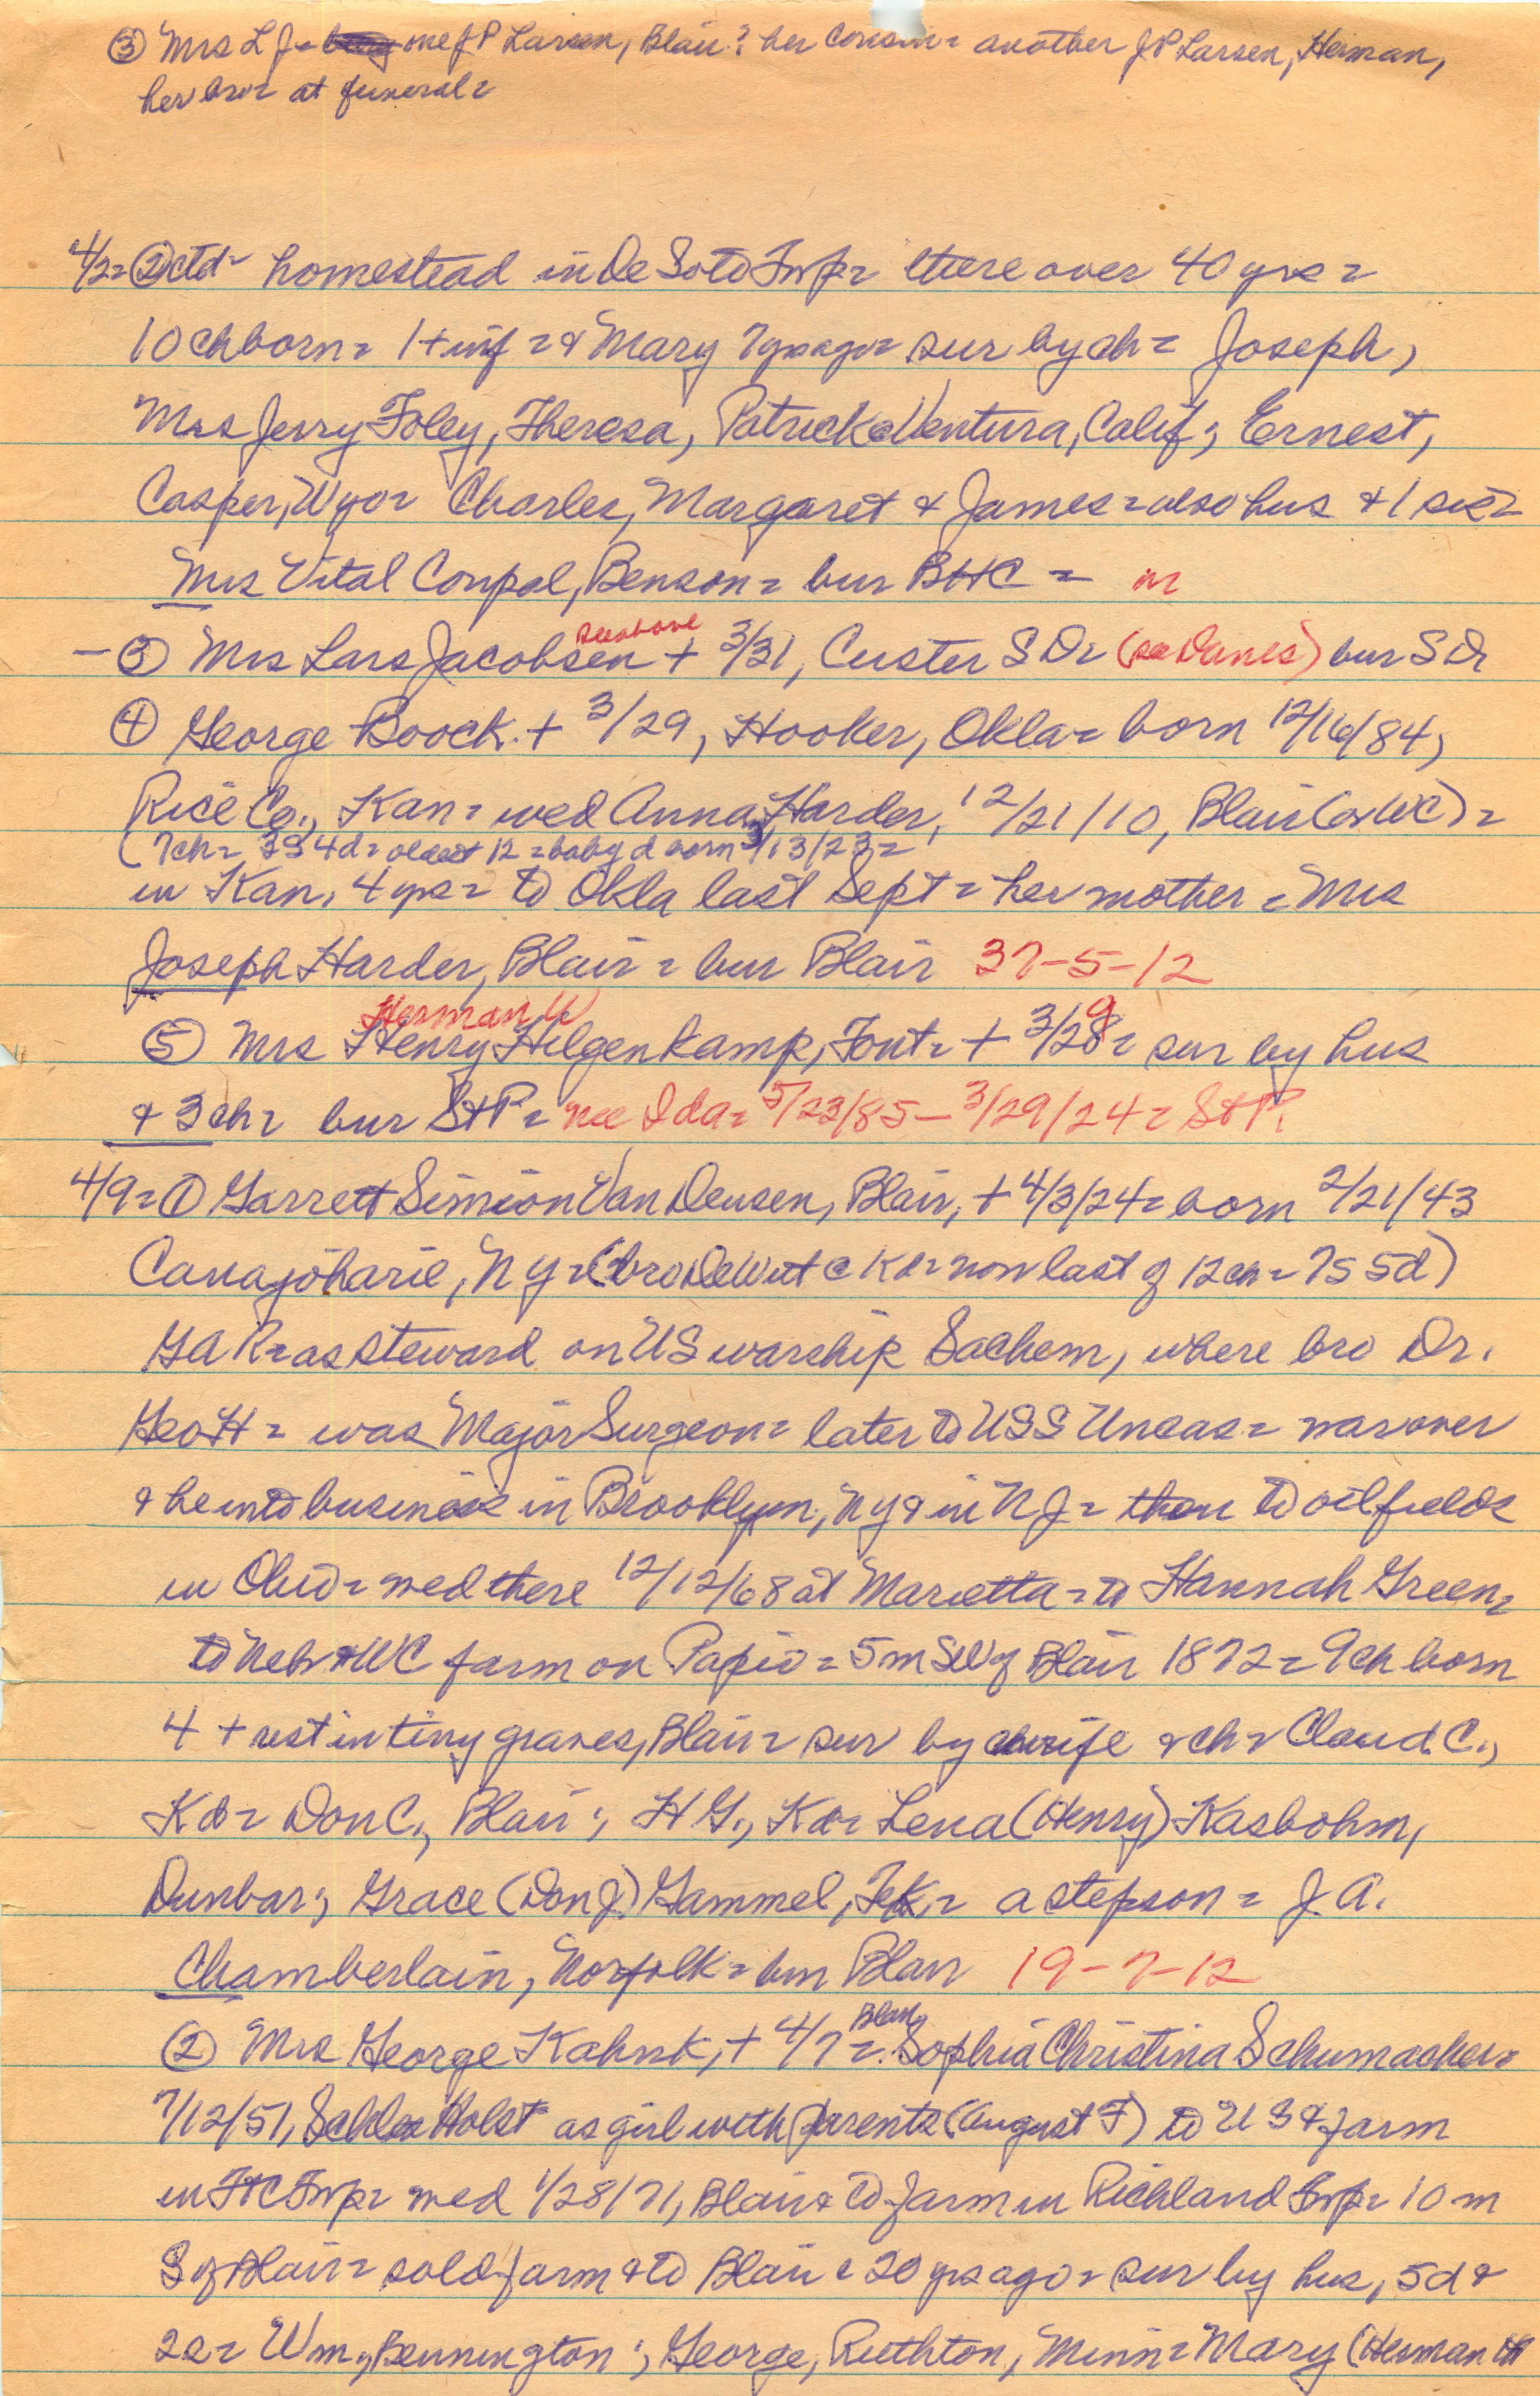 ③ Mrs L J = one J P Larsen, Blair? her cousin = another J P Larsen, Herman,
her bro = at funeral =
4/2 = ② ctd = homestead in De Soto Twp = there over 40 yrs =
10 ch born = 1 + inf = & Mary 7 yrs ago = sur by ch = Joseph,
Mrs Jerry Foley, Theresa, Patrick @ Ventura, Calif; Ernest,
Casper, Wyo = Charles, Margaret & James = also hus & 1 sis =
Mrs Vital Coupal, Benson = bur BHC =
see above
- ③ Mrs Lars Jacobsen + 3/31, Custer SD = (see Danes) bur SD
④ George Boock + 3/29, Hooker, Okla = born 12/16/84,
Rice Co., Kan = wed Anna Harder, 12/21/10, Blair (or WC) =
(7 ch = 3s 4d = oldest 12 = baby d born 3/13/23 =
in Kan, 4 yrs = to Okla last Sept = her mother = Mrs
Joseph Harder, Blair = bur Blair 37-5-12
Herman W 9
⑤ Mrs Henry Hilgenkamp, Font = + 3/28 = sur by hus
& 3 ch = bur StP = nee Ida = 5/23/85 - 3/29/24 = StP.
4/9 = ① Garrett Simeon Van Deusen, Blair, + 4/3/24 = born 2/21/43
Canajoharie, NY = (bro DeWitt @ K = now last of 12 ch = 7s 5d)
GAR = as steward on US warship Sachem, where bro Dr.
Geo H = was Major Surgeon = later to USS Uncas = war over
& he into business in Brooklyn, NY & in NJ = then to oilfields
in Ohio = wed there 12/12/68 at Marietta = to Hannah Green =
to Neb & WC farm on Papio = 5m SW of Blair 1872 = 9 ch born
4 + rest in tiny graves, Blair = sur by wife & ch = Claud C.,
K = Don C., Blair; H G., K = Lena (Henry) Kasbohm,
Dunbar; Grace (Don J) Gammel, Tek = a stepson = J. A.
Chamberlain, Norfolk = bur Blair 19-7-12
Blair
② Mrs George Kahnk, + 4/7 = Sophia Christina Schumacher =
7/12/51, Schles Holst as girl with parents (August F) to US & farm
in FtC Twp = wed 1/28/71, Blair & to farm in Richland Twp = 10 m
S of Blair = sold farm & to Blair c 20 yrs ago = sur by hus, 5d &
2s = Wm, Bennington; George, Ruthton, Minn = Mary (Herman H